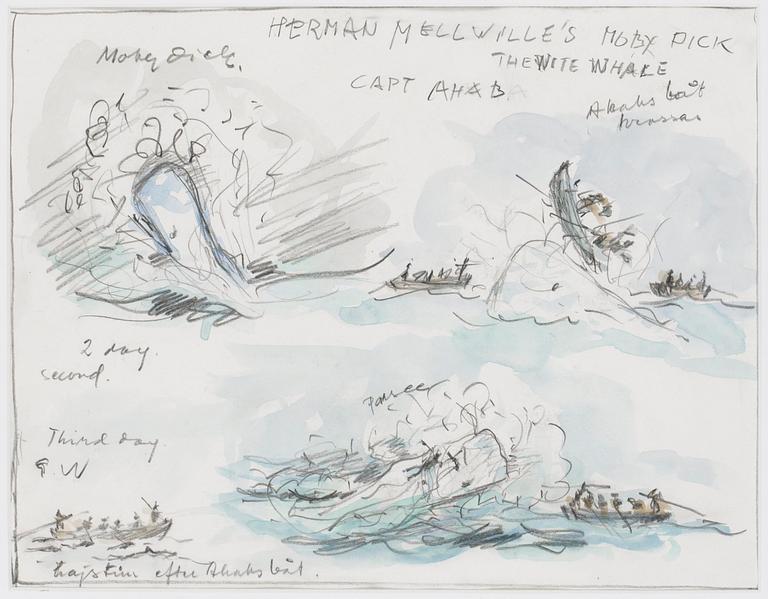 HERMAN MELLWILLE'S MOBY DICK
THE WITE WHALE
Moby Dick.
CAPT AHAB
Ahabs båt
krossas
2 day.
second.
Third day.
hajstim efter Ahabs båt.